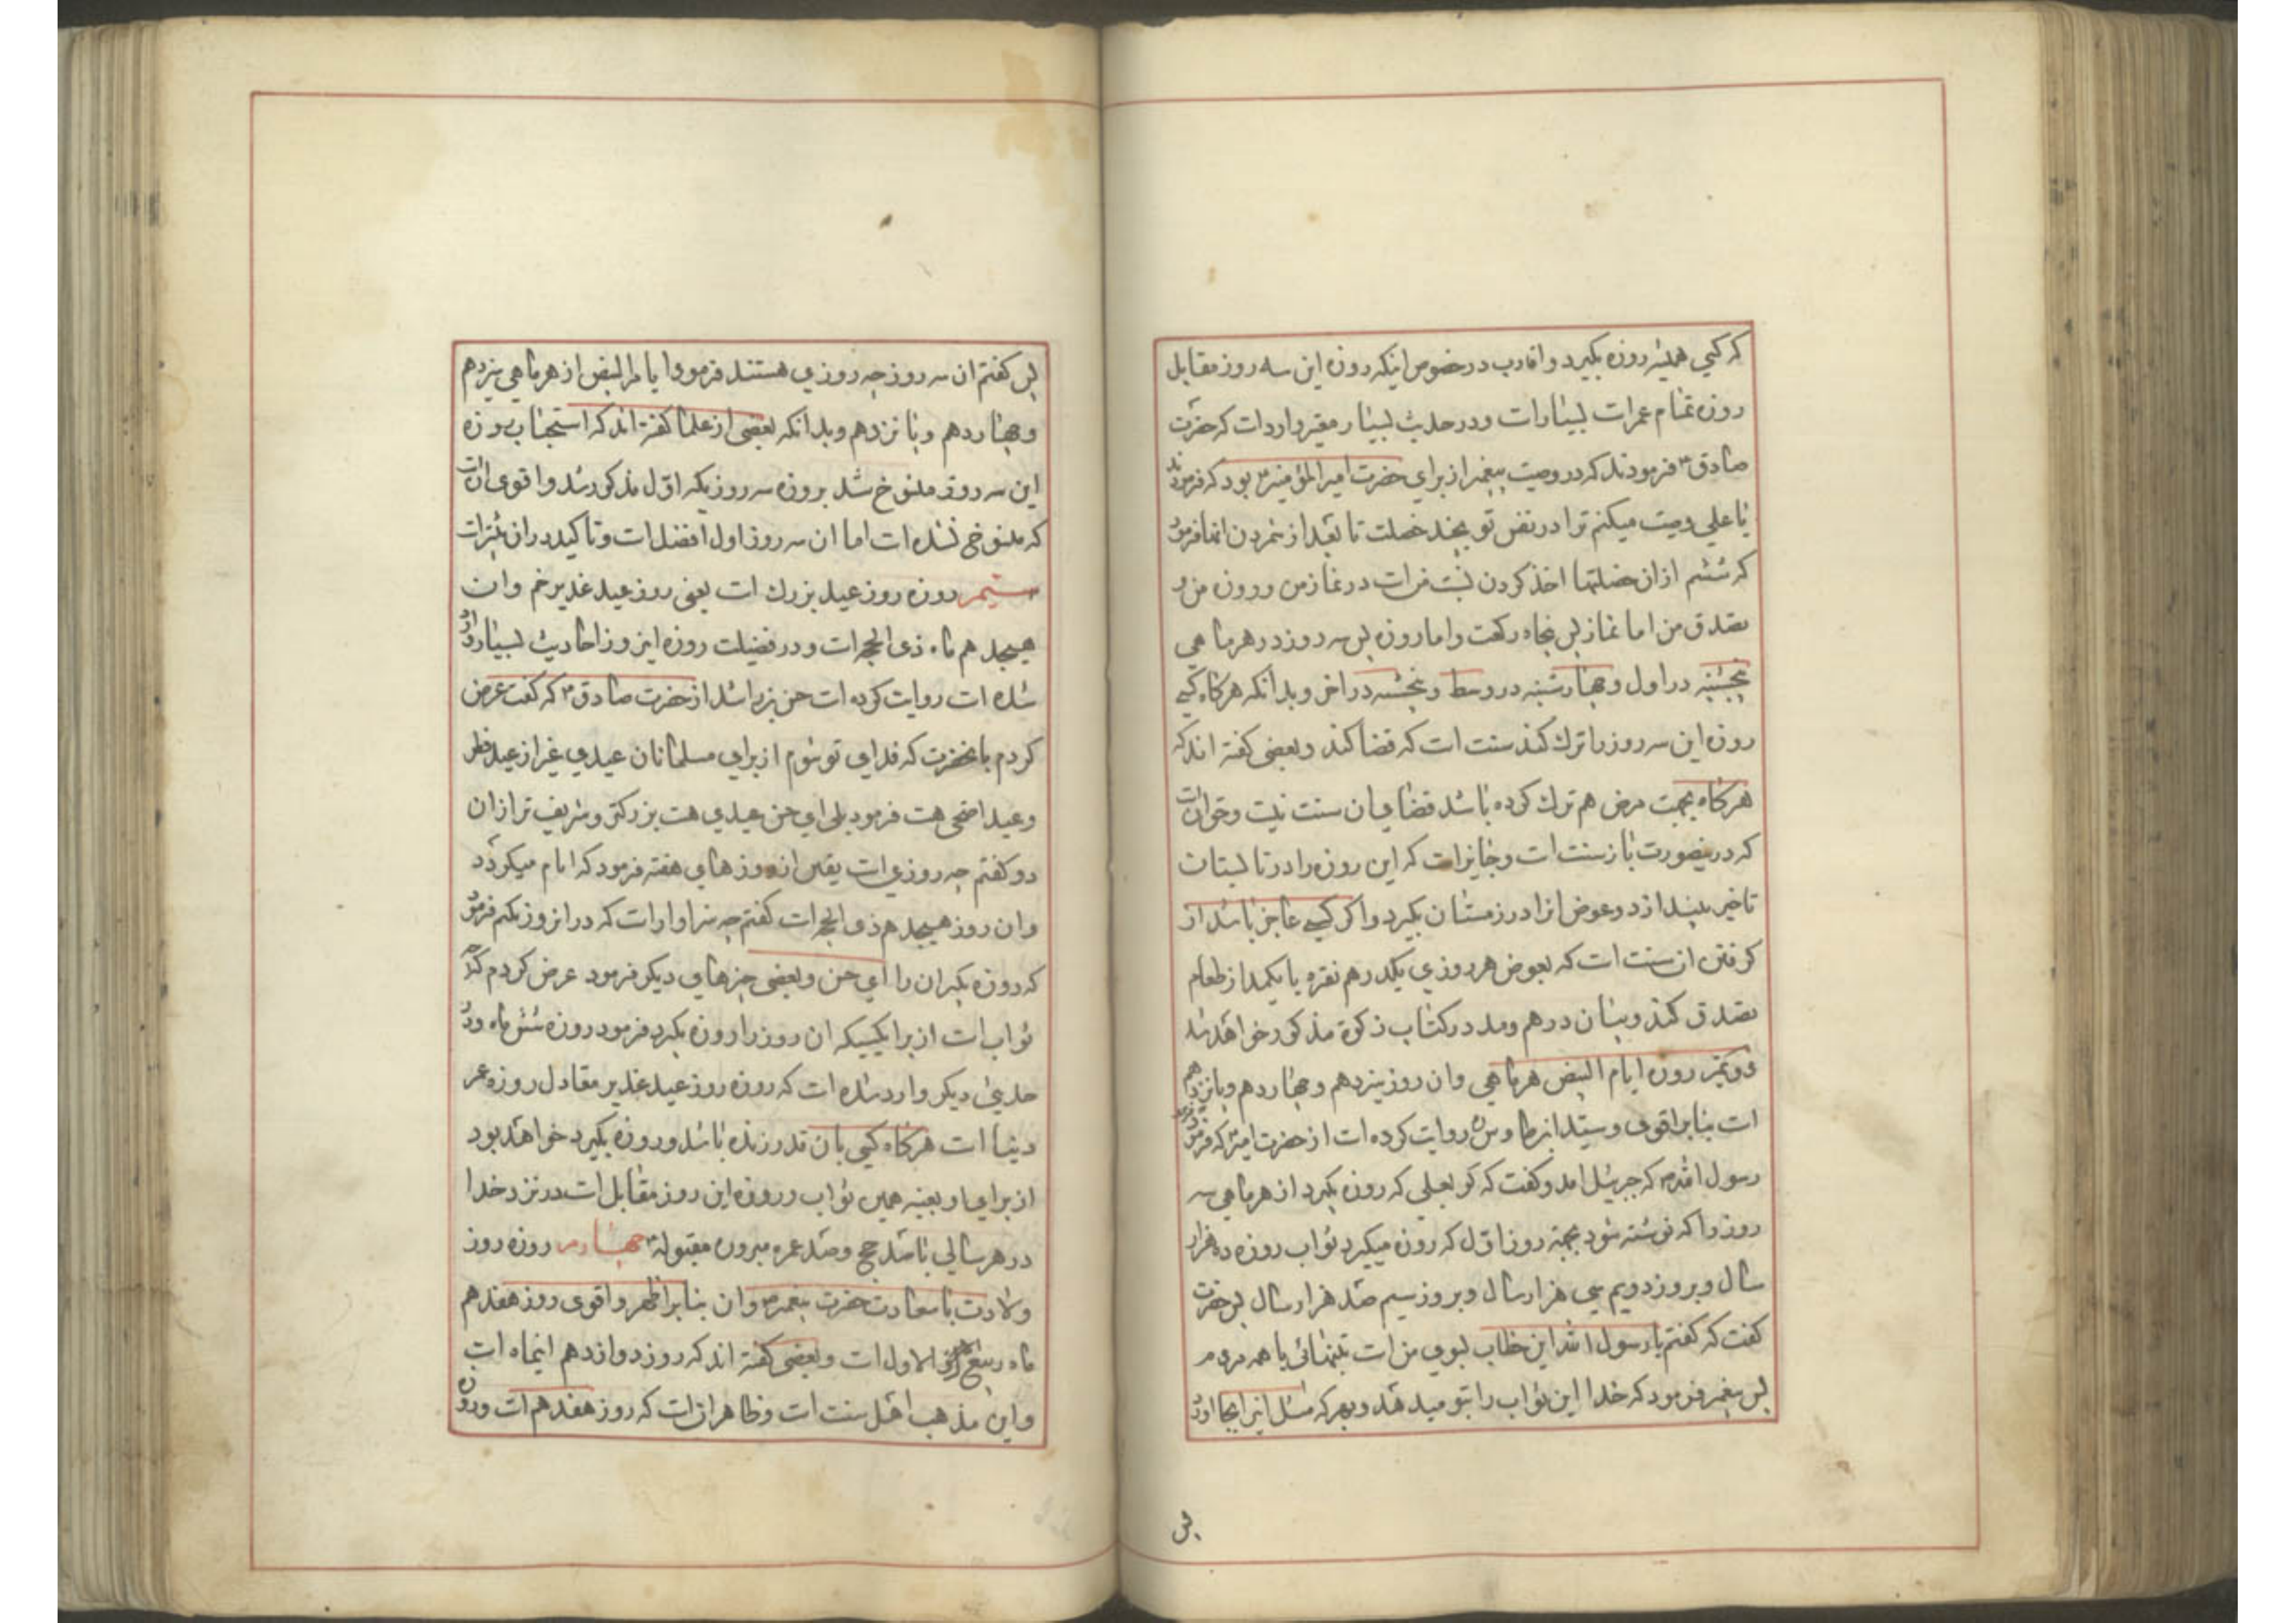 که کسی همیشه روزه بگیرد و احادیث در خصوص اینکه روزه این سه روز مقابل
روزه تمام عمر است بسیار است و در حدیث بسیار معتبر وارد است که حضرت
صادق ع فرمودند که در وصیت پیغمبر از برای حضرت امیرالمؤمنین ع بود که فرمودند
یا علی وصیت میکنم ترا در نفس تو بچند خصلت تا بعد از شمردن انها فرمود
که ششم از ان خصلتها اخذ کردن بسنت من است در نماز من و روزه من و
تصدق من اما نماز پس پنجاه رکعت و اما روزه پس سه روز در هر ماهی
پنجشنبه در اول و چهارشنبه در وسط و پنجشنبه در اخر و بدانکه هرکاه کسی
روزه این سه روز را ترک کند سنت است که قضا کند و بعضی کفته اند که
هرکاه بجهت مرض هم ترک کرده باشد قضای ان سنت نیست و حق ان است
که در اینصورت باز سنت است و جایز است که این روزه را در تابستان
تاخیر بیندازد و عوض انرا در زمستان بگیرد و اکر کسی عاجز باشد از
کرفتن ان سنت است که بعوض هر روزی یکدرهم نقره یا یکمد از طعام
تصدق کند و بیان درهم و مد در کتاب زکوة مذکور خواهد شد
دویم روزه ایام البیض هر ماهی و ان روز سیزدهم و چهاردهم و پانزدهم
است بنا بر اقوی و سید ابن طاوس ره روایت کرده است از حضرت امیر ع که فرمودند
رسول الله ص که جبرئیل امد و کفت که بکو بعلی که روزه بگیرد از هر ماهی سه
روز را که نوشته شود بجهة روز اول که روزه میگیرد ثواب روزه ده هزار
سال و بروز دویم سی هزار سال و بروز سیم صد هزار سال پس حضرت
کفت که کفتم یا رسول الله این ثواب بسوی من است بتنهائی یا همه مردم
پس پیغمبر فرمود که خدا این ثواب را بتو میدهد و بهرکه مثل انرا بجا اورد
پس
پس کفتم ان سه روز چه روزی هستند فرمود ایام البیض از هر ماهی سیزدهم
و چهاردهم و پانزدهم و بدانکه بعضی از علما کفته اند که استحباب روزه
این سه روز منسوخ شد بروزه سه روزیکه اول مذکور شد و اقوی ان است
که منسوخ نشده است اما ان سه روز اول افضل است و تاکید در ان بیشتر است
سیم روزه روز عید بزرک است یعنی روز عید غدیر خم و ان
هیجدهم ماه ذی الحجه است و در فضیلت روزه این روز احادیث بسیار وارد
شده است روایت کرده است حسن بن راشد از حضرت صادق ع که کفت عرض
کردم بانحضرت که فدای تو شوم از برای مسلمانان عیدی غیر از عید فطر
و عید اضحی هست فرمود بلی ای حسن عیدی هست بزرکتر و شریف تر از ان
دو کفتم چه روزی است یقین از روزهای هفته فرمود که ایام میکردد
و ان روز هیجدهم ذی الحجه است کفتم چه سزاوار است که در انروز بکنم فرمود
که روزه بگیر ان را ای حسن و بعضی چیزهای دیکر فرمود عرض کردم که چه
ثواب است از برای کسیکه ان روز را روزه بگیرد فرمود روزه شش ماه و در
حدیثی دیکر وارد شده است که روزه روز عید غدیر معادل روزه عمر
دنیا است هرکاه کسی بان قدر زنده باشد و روزه بگیرد خواهد بود
از برای او بعینه همین ثواب و روزه این روز مقابل است در نزد خدا
در هر سالی با صد حج و صد عمره مبروره مقبوله چهارم روزه روز
ولادت با سعادت حضرت پیغمبر ص و ان بنا بر اظهر و اقوی روز هفدهم
ماه ربیع الاول است و بعضی کفته اند که روز دوازدهم اینماه است
و این مذهب اهل سنت است و ظاهر ان است که روز هفدهم است و روزه